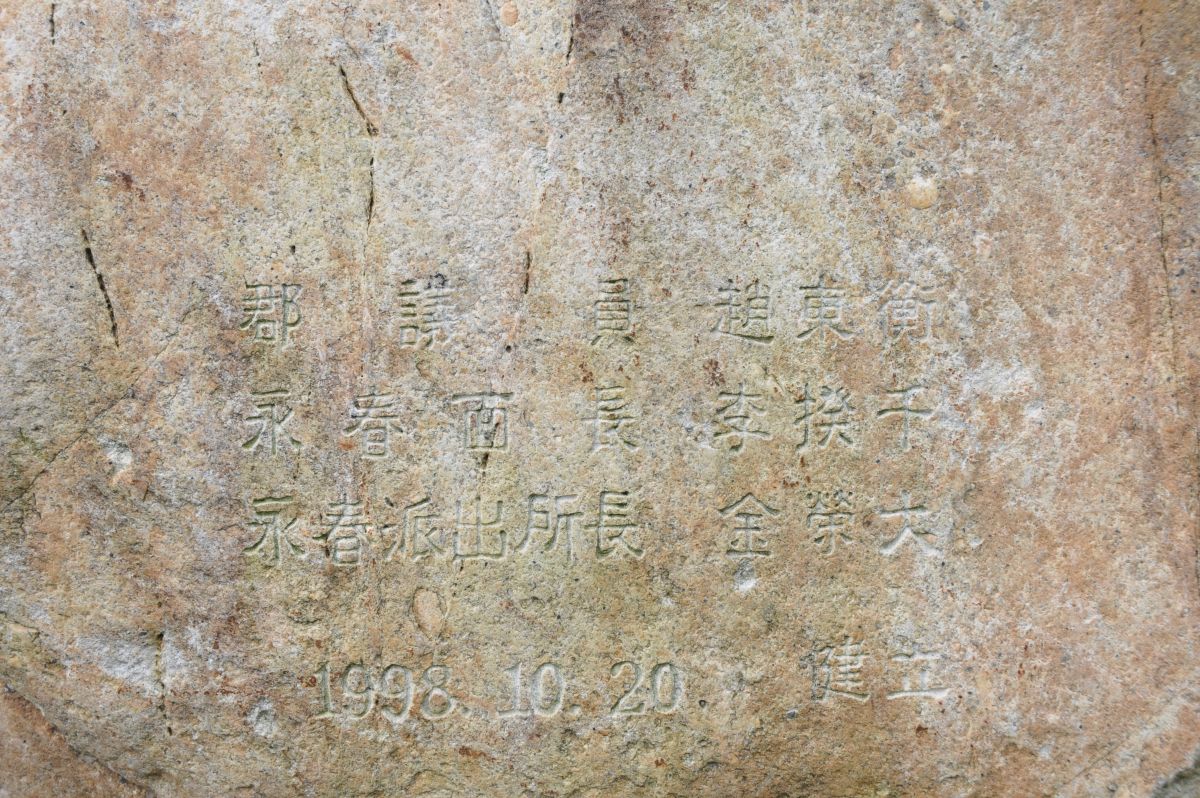 郡議員 趙東衡
永春面長 李揆千
永春派出所長 金榮大
1998. 10. 20. 建立